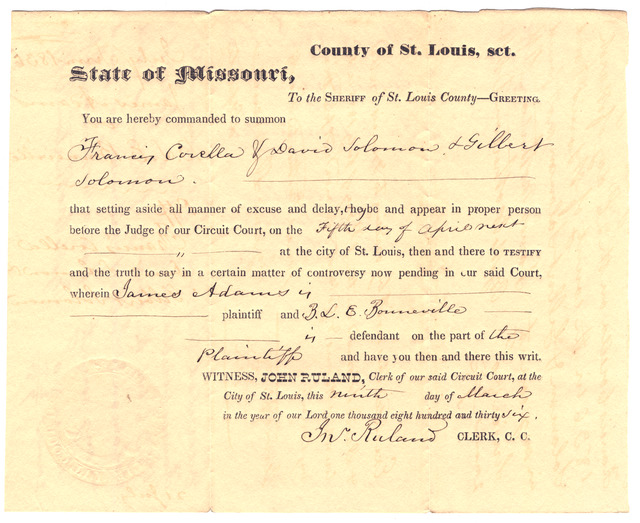 County of St. Louis, sct.
State of Missouri,
To the SHERIFF of St. Louis County—GREETING.
You are hereby commanded to summon
Francis Corella & David Solomon & Gilbert
Solomon.
that setting aside all manner of excuse and delay, they be and appear in proper person
before the Judge of our Circuit Court, on the Fifth day of April next
" at the city of St. Louis, then and there to TESTIFY
and the truth to say in a certain matter of controversy now pending in our said Court,
wherein James Adams is
plaintiff and B. L. E. Bonneville
is defendant on the part of the
Plaintiff and have you then and there this writ.
WITNESS, JOHN RULAND, Clerk of our said Circuit Court, at the
City of St. Louis, this ninth day of March
in the year of our Lord one thousand eight hundred and thirty six.
Jno. Ruland CLERK, C. C.